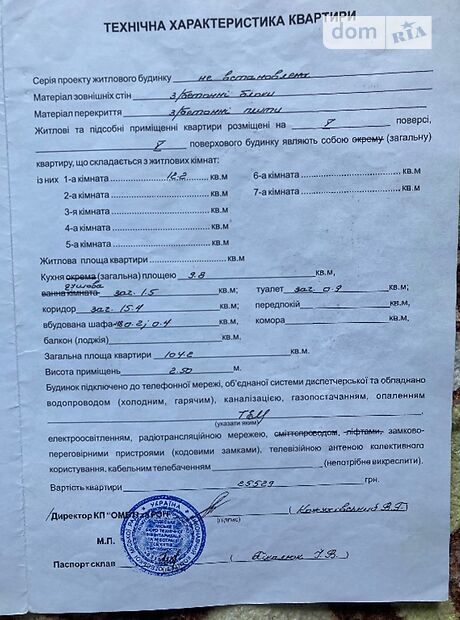 ТЕХНІЧНА ХАРАКТЕРИСТИКА КВАРТИРИ
dom RIA
Серія проекту житлового будинку не встановлена
Матеріал зовнішніх стін з/бетонні блоки
Матеріал перекриття з/бетонні плити
Житлові та підсобні приміщенні квартири розміщені на V поверсі,
V поверхового будинку являють собою окрему (загальну)
квартиру, що складається з житлових кімнат:
із них 1-а кімната 12.2 кв.м 6-а кімната кв.м
2-а кімната кв.м 7-а кімната кв.м
3-я кімната кв.м
4-а кімната кв.м
5-а кімната кв.м
Житлова площа квартири кв.м
Кухня окрема (загальна) площею 9.8 кв.м,
душова
ванна кімната заг. 1.5 кв.м; туалет заг. 0.9 кв.м;
коридор заг. 15.4 кв.м; передпокій кв.м;
вбудована шафа 0.2; 0.4 кв.м; комора кв.м,
балкон (лоджія) кв.м.
Загальна площа квартири кв.м.
Висота приміщень 2.50 м.
Будинок підключено до телефонної мережі, об'єднаної системи диспетчерської та обладнано
водопроводом (холодним, гарячим), каналізацією, газопостачанням, опаленням
ТЕЦ
(указати яким)
електроосвітленням, радіотрансляційною мережею, сміттєпроводом, ліфтами, замково-
переговорними пристроями (кодовими замками), телевізійною антеною колективного
користування, кабельним телебаченням (непотрібне викреслити).
Вартість квартири 25529 грн.
Директор КП "ОМБТІ
(підпис)
М.П.
УКРАЇНА
Паспорт склав